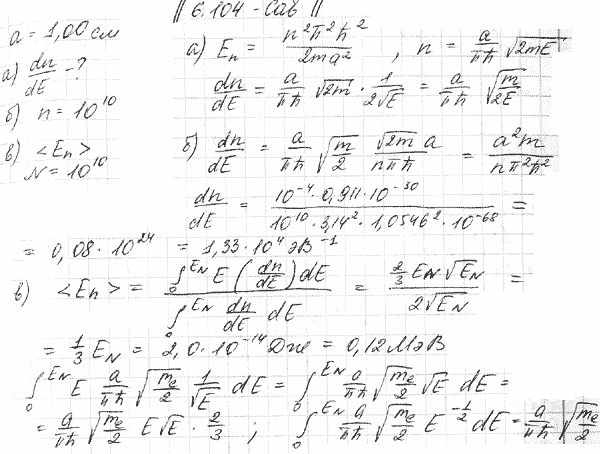 || 6.104 - Сав ||
a = 1,00 см
а) dn/dE - ?
б) n = 10^10
в) <En>
N = 10^10
а) En = n²π²ħ²/2ma² , n = a/πħ √2mE
dn/dE = a/πħ √2m · 1/2√E = a/πħ √m/2E
б) dn/dE = a/πħ √m/2 √2m a/nπħ = a²m/nπ²ħ²
dn/dE = 10^-4 · 0,911 · 10^-30 / 10^10 · 3,14² · 1,0546² · 10^-68 =
= 0,08 · 10^24 = 1,33 · 10^4 эВ^-1
в) <En> = ∫₀^EN E (dn/dE) dE / ∫₀^EN dn/dE dE = 2/3 EN √EN / 2√EN =
= 1/3 EN = 2,0 · 10^-14 Дже = 0,12 МэВ
∫₀^EN E a/πħ √me/2 1/√E dE = ∫₀^EN a/πħ √me/2 √E dE =
= a/πħ √me/2 E√E · 2/3 ; ∫₀^EN a/πħ √me/2 E^-1/2 dE = a/πħ √me/2